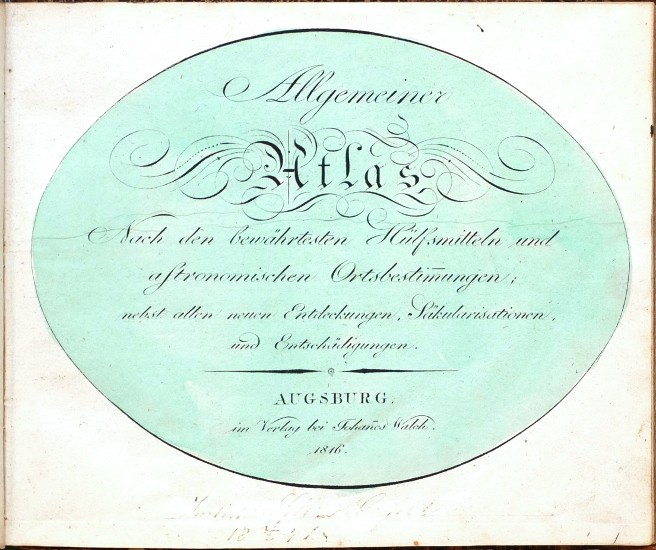 Allgemeiner
Atlas
Nach den bewährtesten Hülfsmitteln und
aſtronomischen Ortsbestim̅ungen;
nebst allen neuen Entdeckungen, Säkularisationen,
und Entschädigungen.
AUGSBURG,
im Verlag bei Johan̅es Walch.
1816.